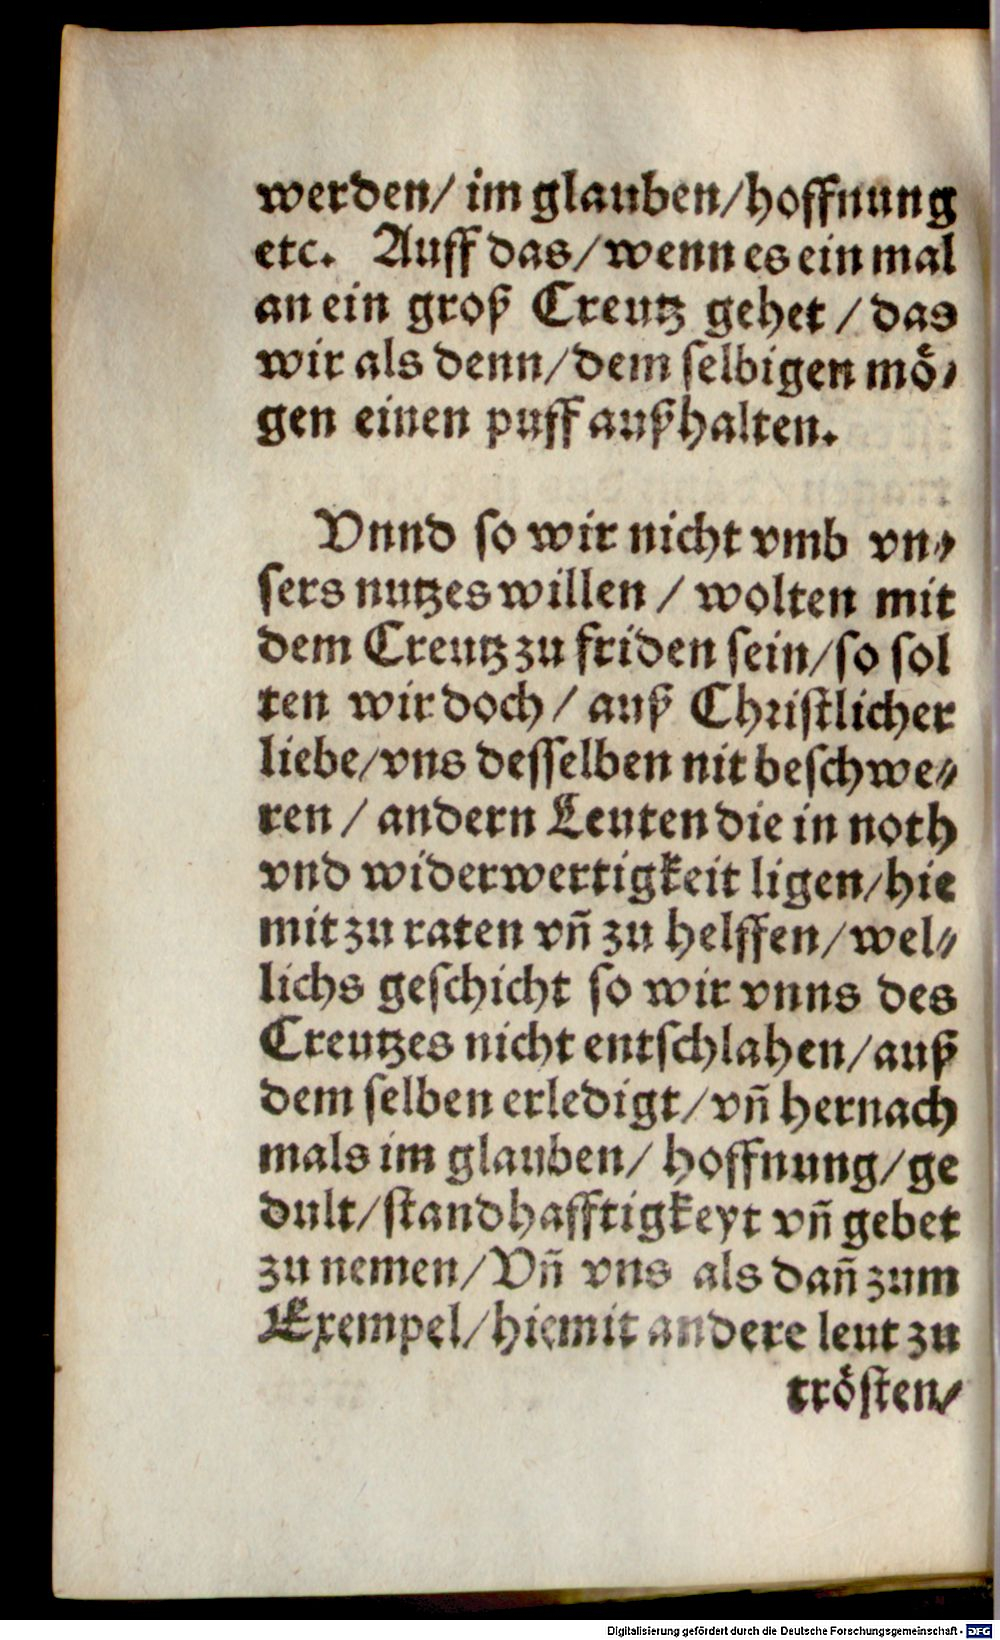 werden/ im glauben/hoffnung
etc. Auff das/wenn es ein mal
an ein groß Creutz gehet / das
wir als denn/dem selbigen mö⸗
gen einen puff außhalten.
Vnnd so wir nicht vmb vn⸗
sers nutzes willen / wolten mit
dem Creutz zu friden sein/so sol
ten wir doch/ auß Christlicher
liebe/vns desselben nit beschwe⸗
ren / andern Leuten die in noth
vnd widerwertigkeit ligen/hie
mit zu raten vñ zu helffen/wel⸗
lichs geschicht so wir vnns des
Creutzes nicht entschlahen/auß
dem selben erledigt/vñ hernach
mals im glauben/ hoffnung/ge
dult/standhafftigkeyt vñ gebet
zu nemen/Vñ vns als dañ zum
Exempel/hiemit andere leut zu
trösten/
Digitalisierung gefördert durch die Deutsche Forschungsgemeinschaft - DFG